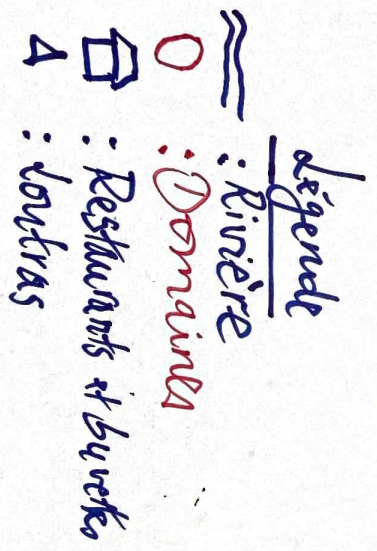 Légende
: Rivière
: Domaines
: Restaurants et buvettes
: Loutras